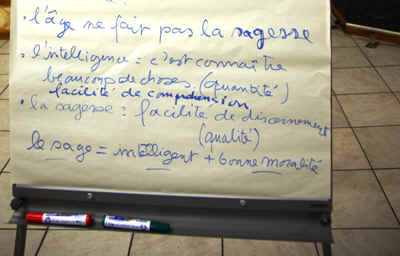 • l'âge ne fait pas la sagesse
• l'intelligence = c'est connaître
beaucoup de choses (quantité)
facilité de compréhension
• la sagesse : facilité de discernement
(qualité)
le sage = intelligent + bonne moralité